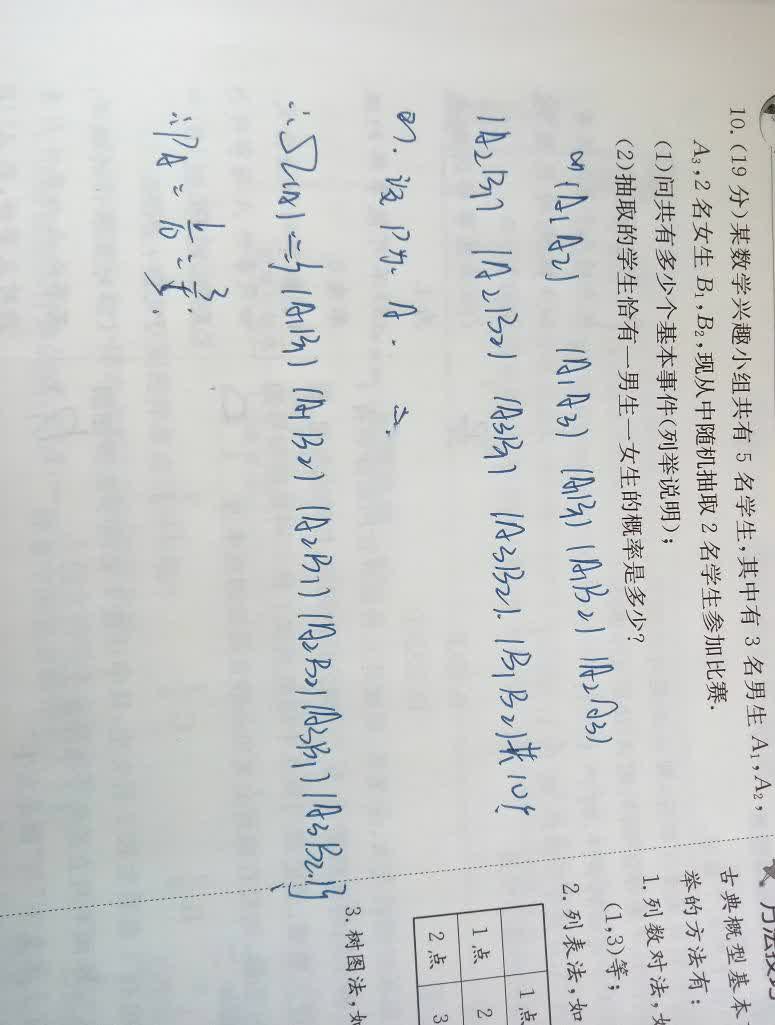 10.(19 分)某数学兴趣小组共有 5 名学生,其中有 3 名男生 A₁,A₂,
A₃,2 名女生 B₁,B₂,现从中随机抽取 2 名学生参加比赛.
(1)问共有多少个基本事件(列举说明);
(2)抽取的学生恰有一男生一女生的概率是多少?
(A₁A₂) (A₁A₃) (A₁B₁) (A₁B₂) (A₂A₃)
(A₂B₁) (A₂B₂) (A₃B₁) (A₃B₂). (B₁B₂)共10个
设 A.
(A₁B₁) (A₁B₂) (A₂B₁) (A₂B₂) (A₃B₁) (A₃B₂)}
∴PA = 6/10 = 3/5.
古典概型基本
举的方法有:
1. 列数对法,
(1,3)等;
2. 列表法,如
1点
1点 2
2点 3
3. 树图法,如